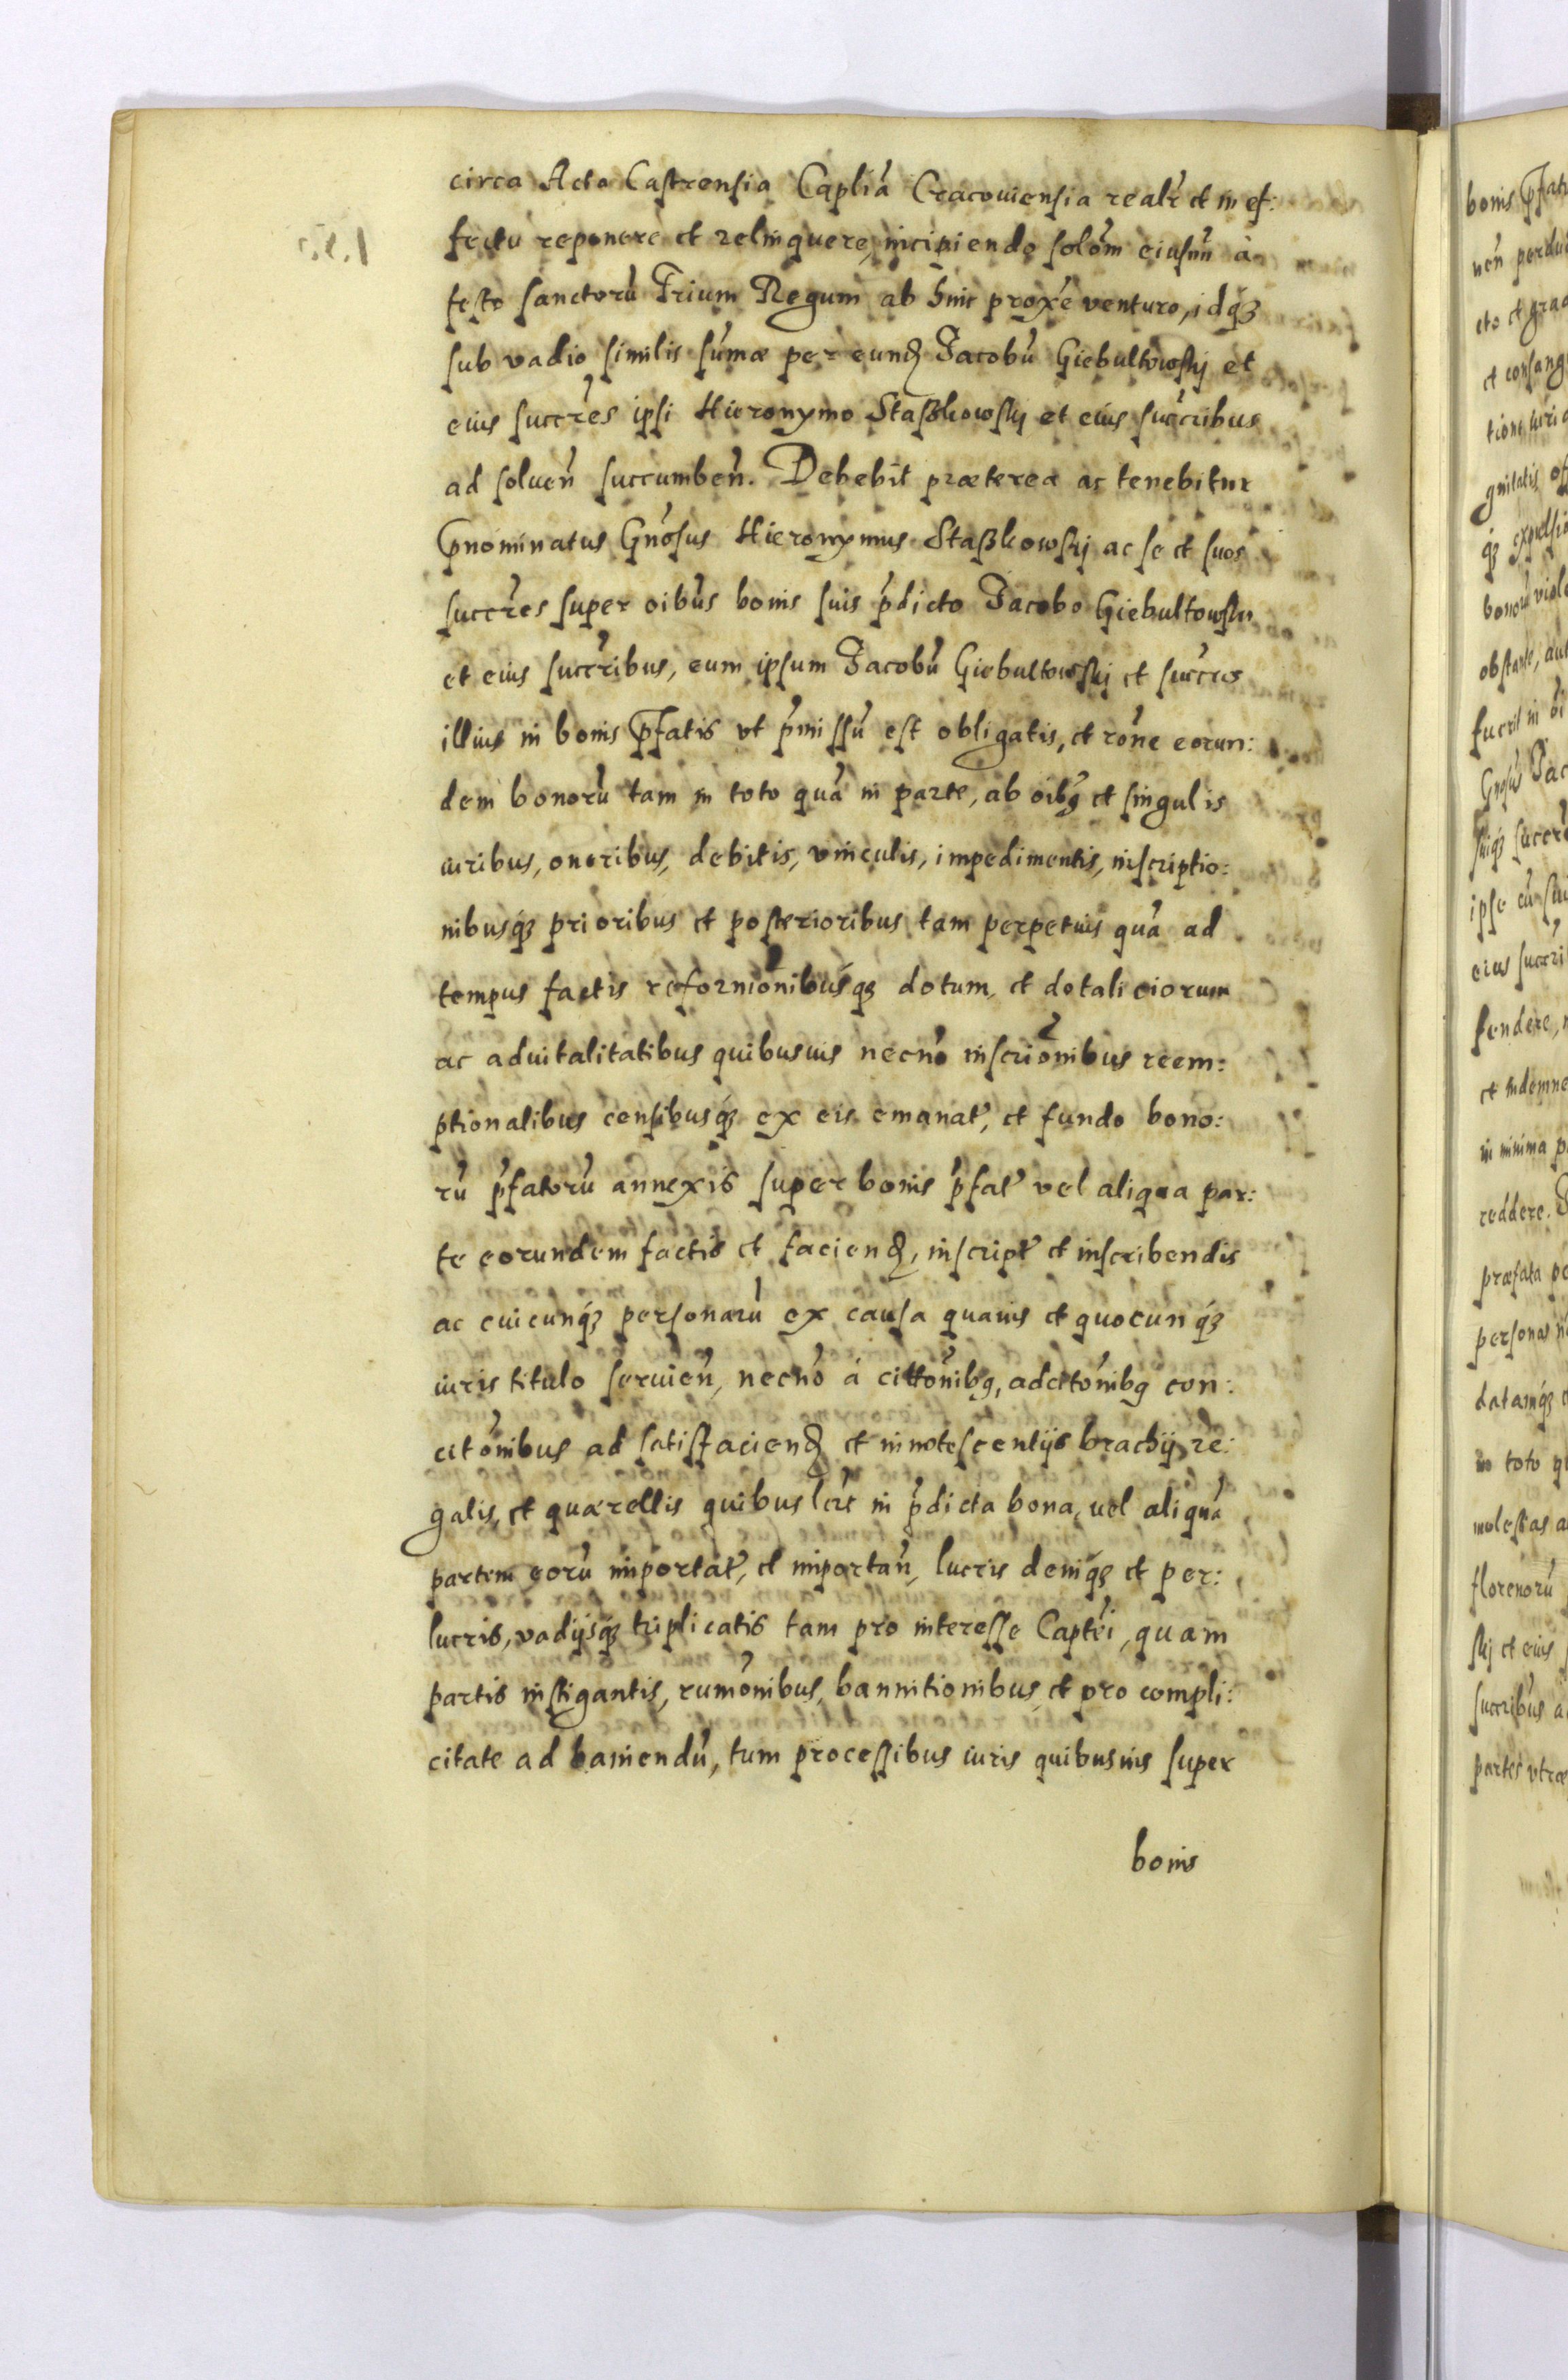 circa Acta Castrensia Caplia᷃ Cracouiensia realr̃ et in ef:
fectu reponere et relinquere, incipiendo solõm eiusm̃ à
festo sanctorũ Trium Regum ab hinc proxẽ venturo, idq́ꝫ
sub vadio similis sum̃æ per eund̃ Jacobũ Giebultowskj et
eius succr̃es ipsi Hieronymo Staßkowskj et eius succr̃ibus
ad soluen̄ succumben̄. Debebit præterea ac tenebitur
p̃nominatus Gñosus Hieronymus Staßkowskj ac se et suos
succr̃es super oib̃us bonis suis p̃dicto Jacobo Giebultowskj
et eius succr̃ibus, eum ipsum Jacobũ Giebultowskj et succr̃es
illius in bonis p̃fatis vt p̃missũ est obligatis, et rõne eorun:
dem bonorũ tam in toto quã in parte, ab oib̃ꝫ et singulis
iuribus, oneribus, debitis, vinculis, impedimentis, inscriptio:
nibusq́ꝫ prioribus et posterioribus tam perpetuis quã ad
tempus factis reformiõnibusq́ꝫ dotum, et dotaliciorum
ac aduitalitatibus quibusuis necnõ inscriõnibus reem:
ptionalibus censibusq́ꝫ ex eis emanat̃, et fundo bono:
rũ p̃fatorũ annexis super bonis p̃fat̃ vel aliqua par:
te eorundem factis et faciend̃, inscript̃ et inscribendis
ac cuicunq́ꝫ personarũ ex causa quauis et quocunq́ꝫ
iuris titulo seruien̄, necnõ à cittõnibꝫ, adcitõnibꝫ con:
citõnibus ad satisfaciend̃ et innotescentijs brachij re:
galis, et quærellis quibuslr̃t in p̃dicta bona, vel aliquã
partem eorũ importat̃, et importan̄, lucris deniq́ꝫ et per:
lucris, vadijsq́ꝫ triplicatis tam pro interesse Captẽi, quam
partis instigantis, rumõnibus, bannitionibus, et pro compli:
citate ad baniendũ, tum processibus iuris quibusuis super
bonis